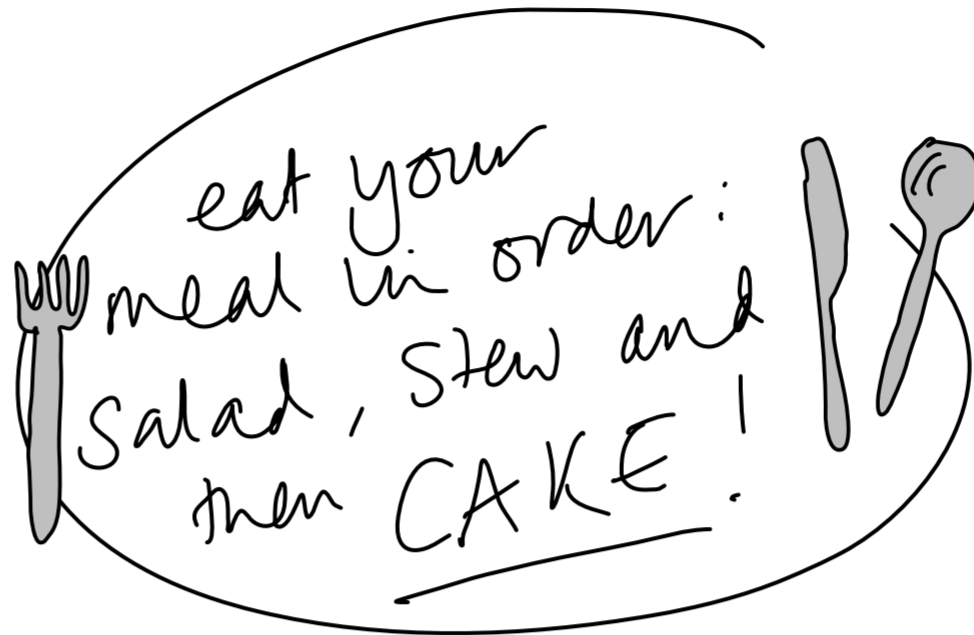 eat your
meal in order:
salad, stew and
then CAKE!